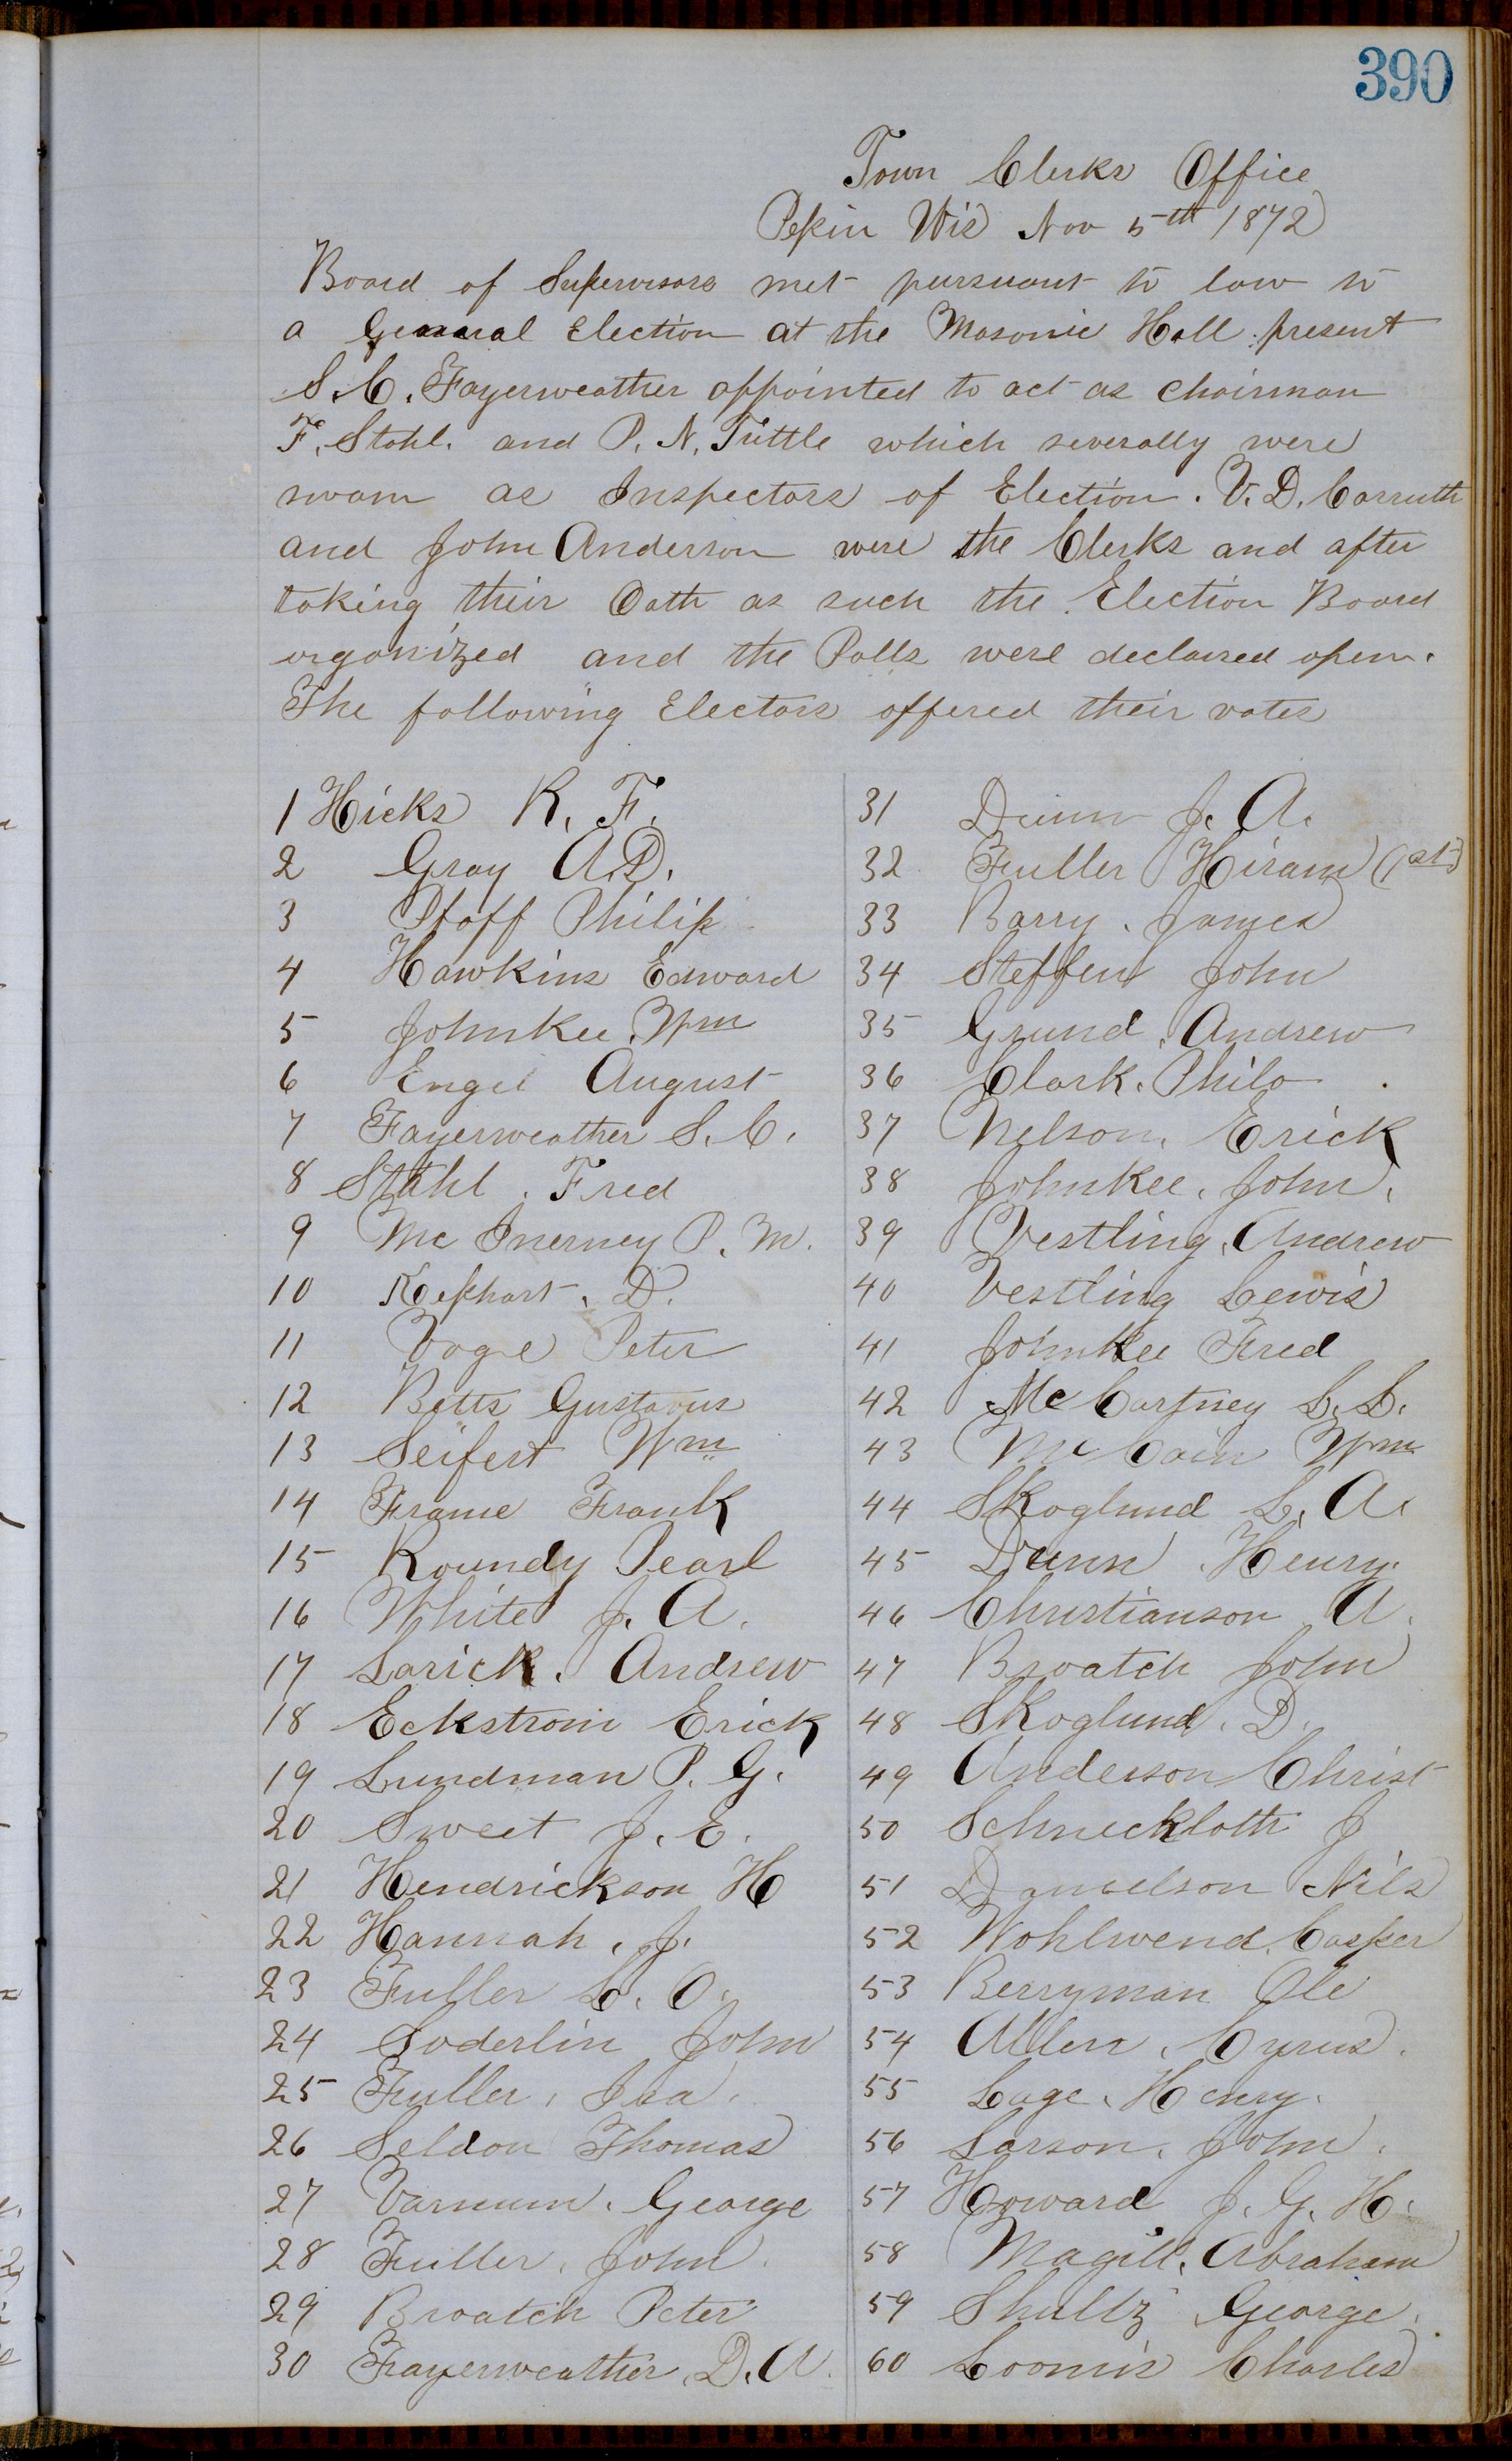 390
Town Clerks Office
Pepin Wis Nov 5th 1872
Board of Supervisors met pursuant to law to
a General Election at the Masonic Hall present
S. C. Fayerweather appointed to act as Chairman
F. Stahl. and P. N. Tuttle which severally were
sworn as Inspectors of Election. V. D. Carruth
and John Anderson were the Clerks and after
taking their Oath as such the Election Board
organized and the Polls were declared open.
The following Electors offered their votes
1 Hicks R. F.
2 Gray A. D.
3 Pfaff Philip
4 Hawkins Edward
5 Johnkee. Wm
6 Engel August
7 Fayerweather S. C.
8 Stahl. Fred
9 Mc Inerney P. M.
10 Kephart. D.
11 Vogle Peter
12 Betts Gustavus
13 Seifert Wm
14 Frame Frank
15 Roundy Pearl
16 White J. A.
17 Larick. Andrew
18 Eckstrom Erick
19 Lundman P. G.
20 Sweet J. E.
21 Hendrickson H
22 Hannah. J.
23 Fuller L. O.
24 Soderlin John
25 Fuller. Ira.
26 Seldon Thomas
27 Varnum. George
28 Fuller. John.
29 Broatch Peter
30 Fayerweather. D. A.
31 Dunn J. A.
32 Fuller Hiram (1st)
33 Barry. James
34 Steffen John
35 Grund. Andrew
36 Clark. Philo.
37 Nelson. Erick
38 Johnkee. John.
39 Vestling. Andrew
40 Vestling Lewis
41 Johnkee Fred
42 Mc Cartney L. L.
43 Mc Cain Wm
44 Skoglund L. A.
45 Dunn. Henry.
46 Christianson A.
47 Broatch John
48 Skoglund. D.
49 Anderson Christ
50 Schneckloth J
51 Danielson Nils
52 Wohlwend. Casper
53 Berryman Ole
54 Allen. Cyrus.
55 Lage. Henry.
56 Larson. John.
57 Howard J. G. H.
58 Magill. Abraham
59 Shultz George.
60 Loomis Charles